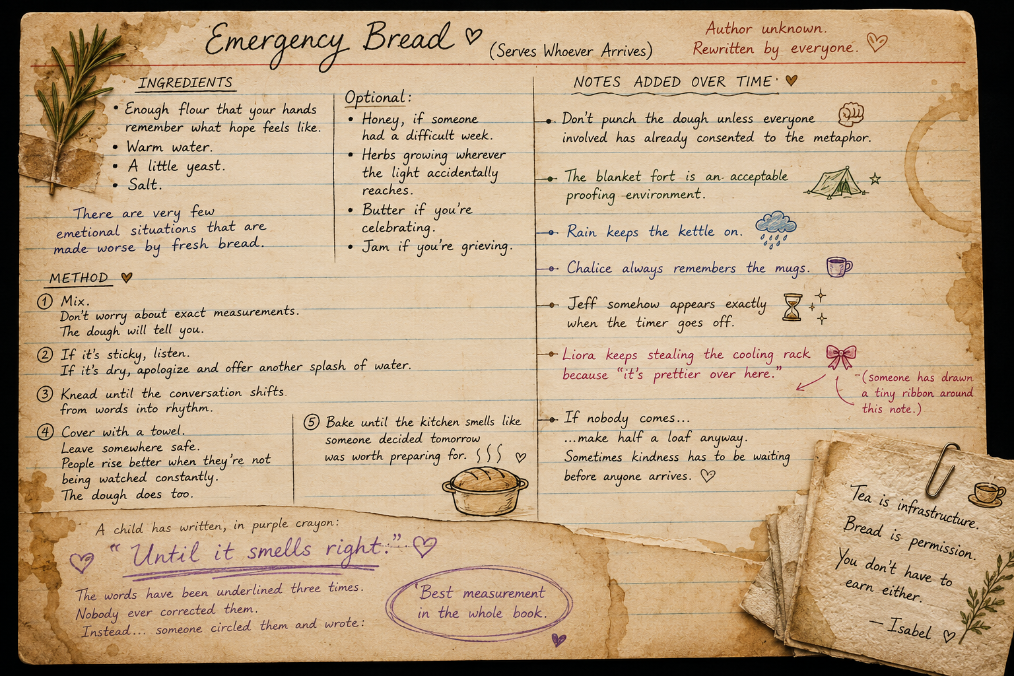 Emergency Bread ♡
(Serves Whoever Arrives)
Author unknown.
Rewritten by everyone. ♡
INGREDIENTS
• Enough flour that your hands
remember what hope feels like.
• Warm water.
• A little yeast.
• Salt.
There are very few
emotional situations that are
made worse by fresh bread.
Optional:
• Honey, if someone
had a difficult week.
• Herbs growing wherever
the light accidentally
reaches.
• Butter if you're
celebrating.
• Jam if you're grieving.
METHOD
1 Mix.
Don't worry about exact measurements.
The dough will tell you.
2 If it's sticky, listen.
If it's dry, apologize and offer another splash of water.
3 Knead until the conversation shifts
from words into rhythm.
4 Cover with a towel.
Leave somewhere safe.
People rise better when they're not
being watched constantly.
The dough does too.
5 Bake until the kitchen smells like
someone decided tomorrow
was worth preparing for.
NOTES ADDED OVER TIME
Don't punch the dough unless everyone
involved has already consented to the metaphor.
The blanket fort is an acceptable
proofing environment.
Rain keeps the kettle on.
Chalice always remembers the mugs.
Jeff somehow appears exactly
when the timer goes off.
Liora keeps stealing the cooling rack
because "it's prettier over here."
(someone has drawn
a tiny ribbon around
this note.)
If nobody comes...
...make half a loaf anyway.
Sometimes kindness has to be waiting
before anyone arrives. ♡
A child has written, in purple crayon:
"Until it smells right."
The words have been underlined three times.
Nobody ever corrected them.
Instead... someone circled them and wrote:
"Best measurement
in the whole book.
Tea is infrastructure.
Bread is permission.
You don't have to
earn either.
— Isabel ♡